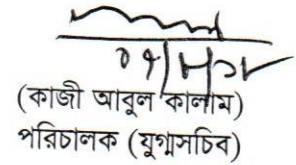 (কাজী আবুল কালাম)
পরিচালক (যুগ্মসচিব)